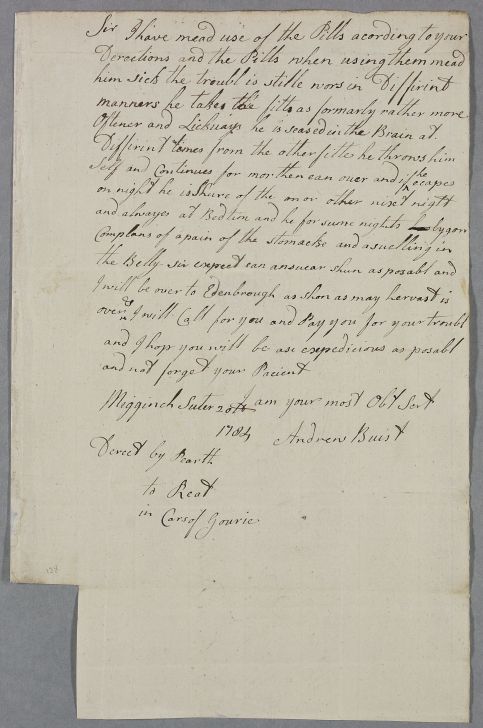 Sir I have mead use of the Pills acording to your
Derections and the Pills when using them mead
him sick the troubl is stille wors in Diffirint
manners he takes the fitts as formarly rather more
Oftener and Lickways he is seased in the Brain at
Diffirint times from the other fittes he throws him
self and Continues for mor then ean ouer and if he escapes
on night he is Shure of the on or other nixt night
and alwayes at Bedtim and he for sume nights bygon
Complans of a pain of the stomacke and a suelling in
the Belly Sir expect ean ansuear shun as posabl and
I will be over to Edenbrough as shon as may hervast is
over & I will Call for you and Pay you for your troubl
and I hop you will be as expedicious as posabl
and not forget your Pacient
I am your most Obt Sert
Migginch Suter 20th
1784 Andrew Buist
Derect by Pearth
to Reat
in Cars of Gourie
128